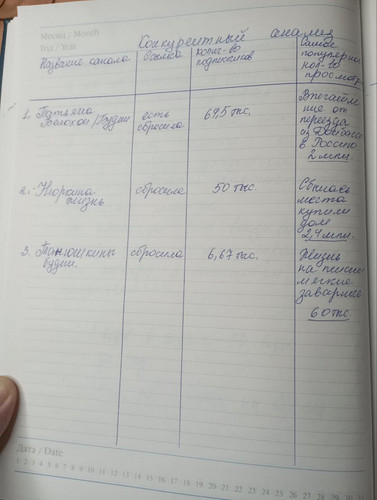 Месяц / Month
Год / Year
Конкурентный анализ
Название канала
кол-во подписчиков
Самое популярное
кол-во
просмотр.
1. Татьяна
Волохой/Будни
есть
сбросила
695 тыс.
Впечатле
ние от
переезда
из
в Россию
2 млн.
2.
жизнь
сбросила
50 тыс.
Сбылась
мечта
купили
дом
2,4 млн.
3. Танюшкины
будни.
сбросила
6,67 тыс.
Жизнь
на пенсии
мягкие
заварные
60 тыс
Дата / Date
1 2 3 4 5 6 7 8 9 10 11 12 13 14 15 16 17 18 19 20 21 22 23 24 25 26 27 28 29 30 31